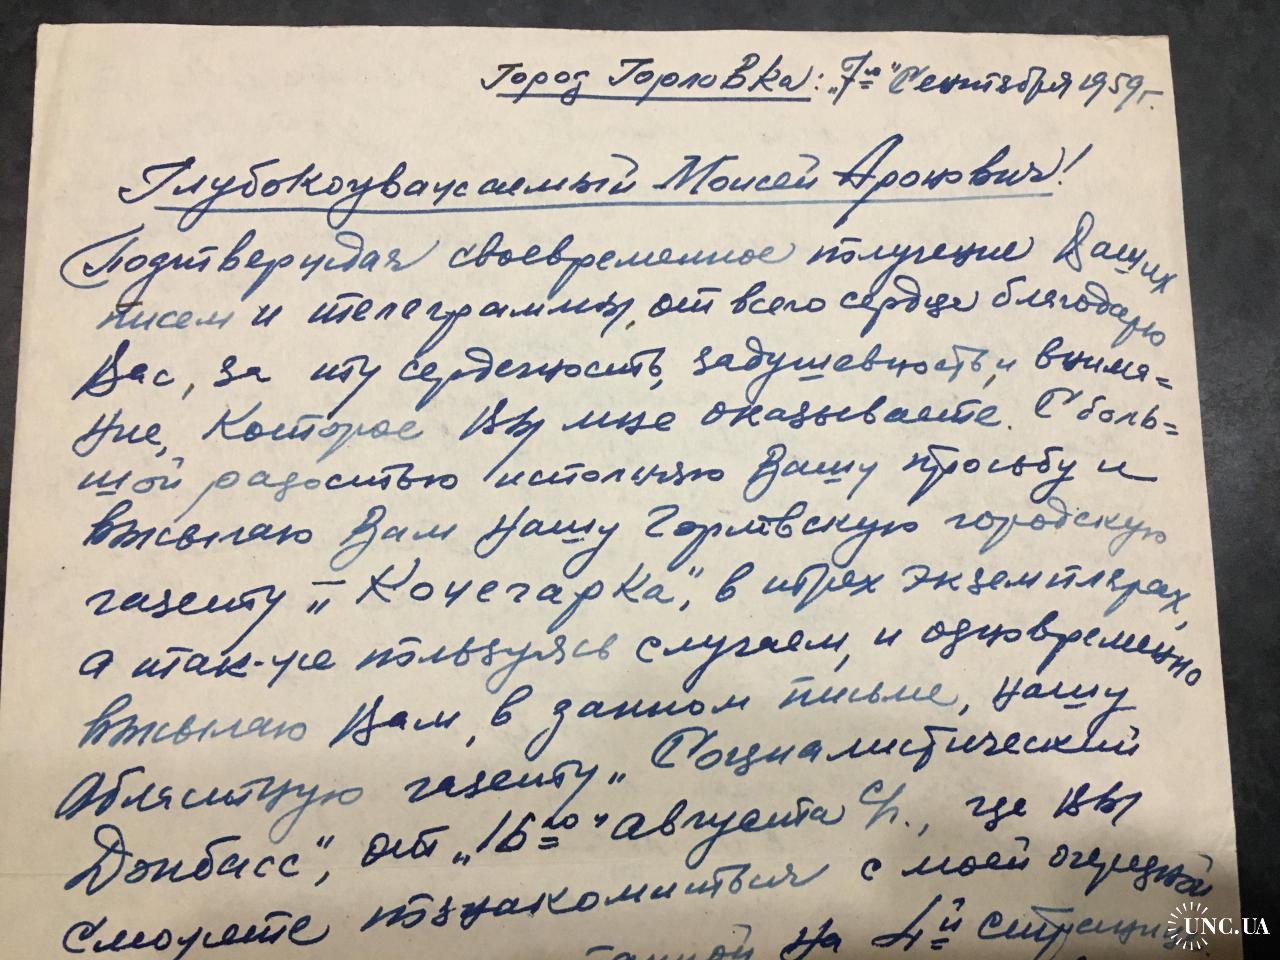 Город Горловка: „7го" Сентября 1959г.
Глубокоуважаемый Моисей Аронович!
Подтверждая своевременное получение Ваших
писем и телеграммы, от всего сердца благодарю
Вас, за ту сердечность, задушевность, и внима=
ние, которое Вы мне оказываете. С боль=
шой радостью исполняю Вашу просьбу и
высылаю Вам нашу Горловскую городскую
газету „ – Кочегарка", в трёх экземплярах,
а так-же пользуясь случаем, и одновременно
высылаю Вам, в данном письме, нашу
областную газету „Социалистический
Донбасс", от „16го" августа с/г., где Вы
сможете познакомиться с моей очередной
на 4й странице
UNC.UA